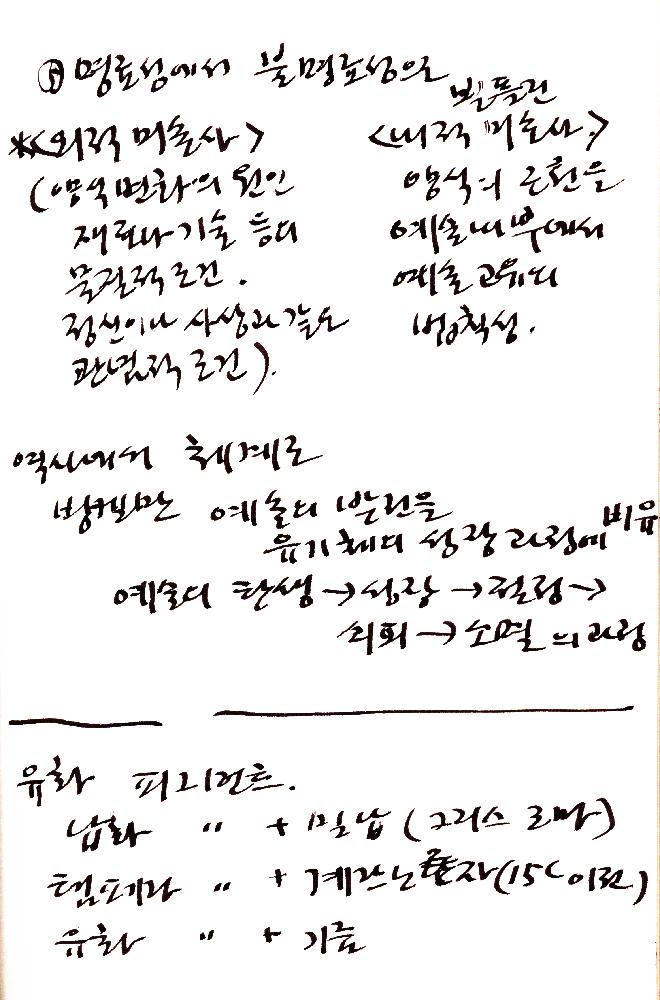 ⑤ 명료성에서 불명료성으로
*<외적 미술사>
(양식변화의 원인
재료나 기술 등의
물질적 조건.
정신이나 사상과 같은
관념적 조건).
뵐플린
<내적 미술사>
양식의 근원을
예술내부에서
예술 고유의
법칙성.
역사에서 체계로
빙켈만 예술의 발전을
유기체의 성장 과정에 비유
예술의 탄생→성장→절정→
쇠퇴→소멸의 과정
유화 피그먼트.
납화 〃 + 밀납 (그리스 로마)
템페라 〃 + 계란노른자(15C이전)
유화 〃 + 기름